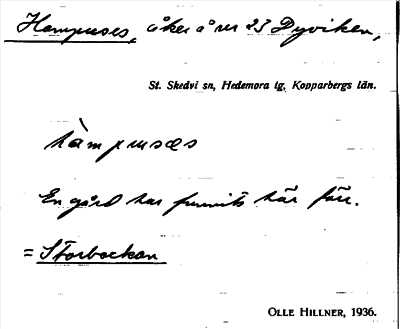 Hampuses, åker å nr 23 Dyviken,
St. Skedvi sn, Hedemora tg, Kopparbergs län.
hàmpusæs
En gård har funnits här förr.
= Storbackan
OLLE HILLNER, 1936.